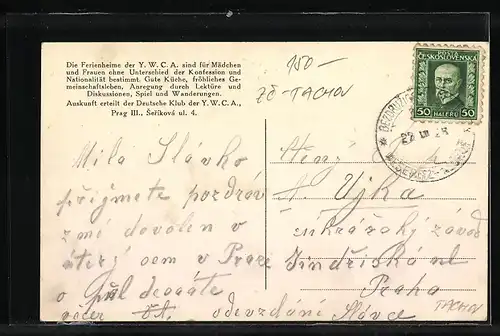 Die Ferienheime der Y. W. C. A. sind für Mädchen
und Frauen ohne Unterschied der Konfession und
Nationalität bestimmt. Gute Küche, fröhliches Ge-
meinschaftsleben, Anregung durch Lektüre und
Diskussionen, Spiel und Wanderungen.
Auskunft erteilt der Deutsche Klub der Y. W. C. A.,
Prag III., Šeříková ul. 4.
150-
ZČ-TACHOV
POŠTA
ČESKOSLOVENSKÁ
50 HALÉŘŮ 50
Milá Slávko
přijměte pozdrav
z mé dovolen v
úterý sem v Praze
o půl desáté
večer odevzdání Slávce
A. Ujka
cukrářský závod
Jindřišská ul
Praha
TACHOV